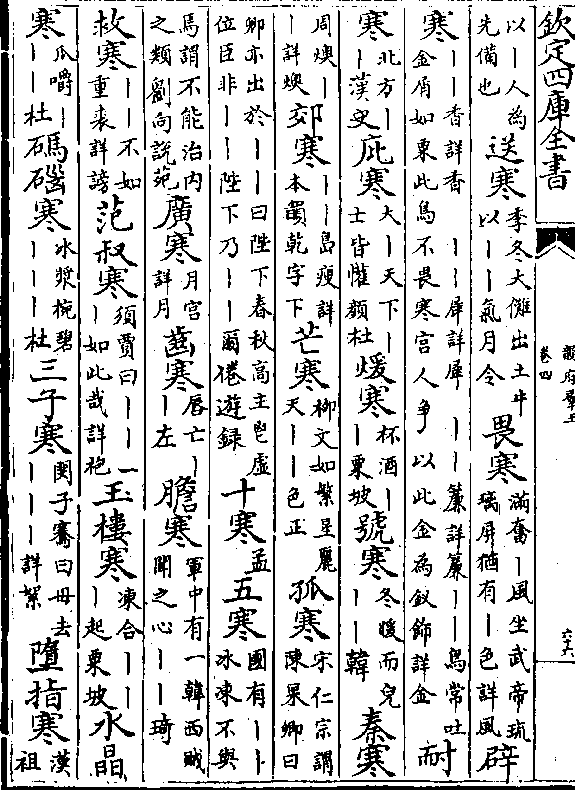 欽定四庫全書
韻府羣玉
卷四
以丨人為先備也 送寒 季冬大儺出土牛以丨丨氣月令 畏寒 滿奮丨風坐武帝琉璃屏猶有丨色詳風 辟
寒 丨丨香詳香 丨丨犀詳犀 丨丨簾詳簾 丨丨鳥常吐金屑如粟此鳥不畏寒宮人爭以此金為釵飾詳金 耐
寒 北方丨丨漢史 庇寒 大丨天下丨士皆懽顏杜 煖寒 杯酒丨丨粟坡 號寒 冬暖而兒丨丨韓 秦寒
周燠丨丨詳燠 郊寒 丨丨島瘦詳本韻乾字下 芒寒 柳文如繁星麗天丨丨色正 孤寒 宋仁宗謂陳杲卿曰
卿亦出於丨丨曰陛下春秋高主鬯虛位臣非丨丨陛下乃丨丨爾倦遊録 十寒 孟 五寒 國有丨丨氷凍不與
焉謂不能治内之類劉向說苑 廣寒 月宮詳月 齒寒 唇亡丨丨左 膽寒 軍中有一韓西賊聞之心丨丨琦
救寒 丨丨不如重裘詳謗 范叔寒 須賈曰丨丨一丨如此哉詳袍 玉樓寒 凍合丨丨丨起粟坡 水晶
寒 瓜嚼丨丨丨杜 碼碯寒 冰漿椀碧丨丨丨杜 三子寒 閔子騫曰母去丨丨丨詳絮 墮指寒 漢祖